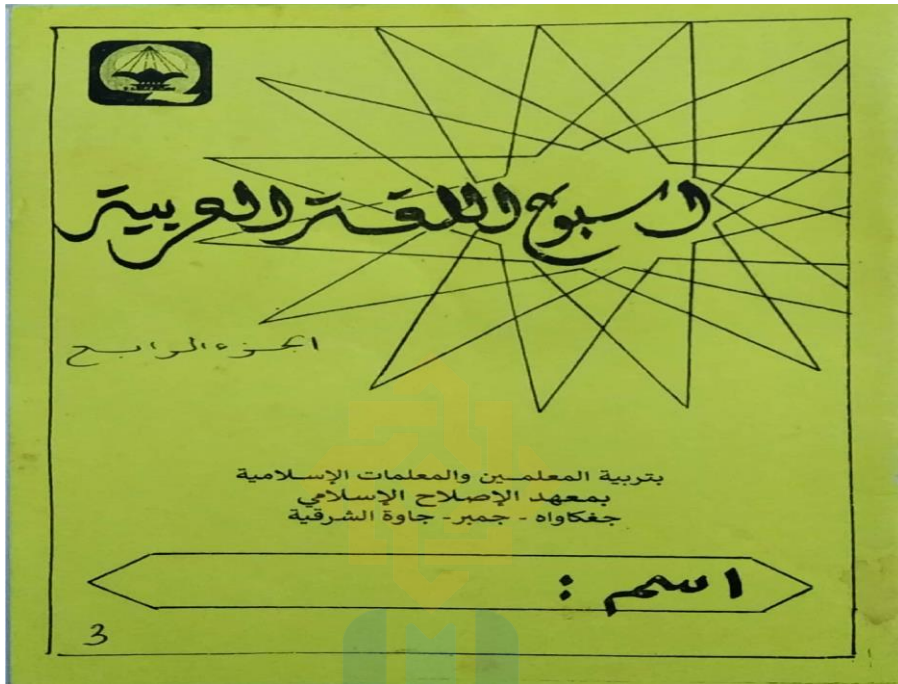 اسبوع اللغة العربية
الجزء الرابع
بتربية المعلمين والمعلمات الإسلامية
بمعهد الإصلاح الإسلامي
جغكاواه - جمبر - جاوة الشرقية
اسم :
3